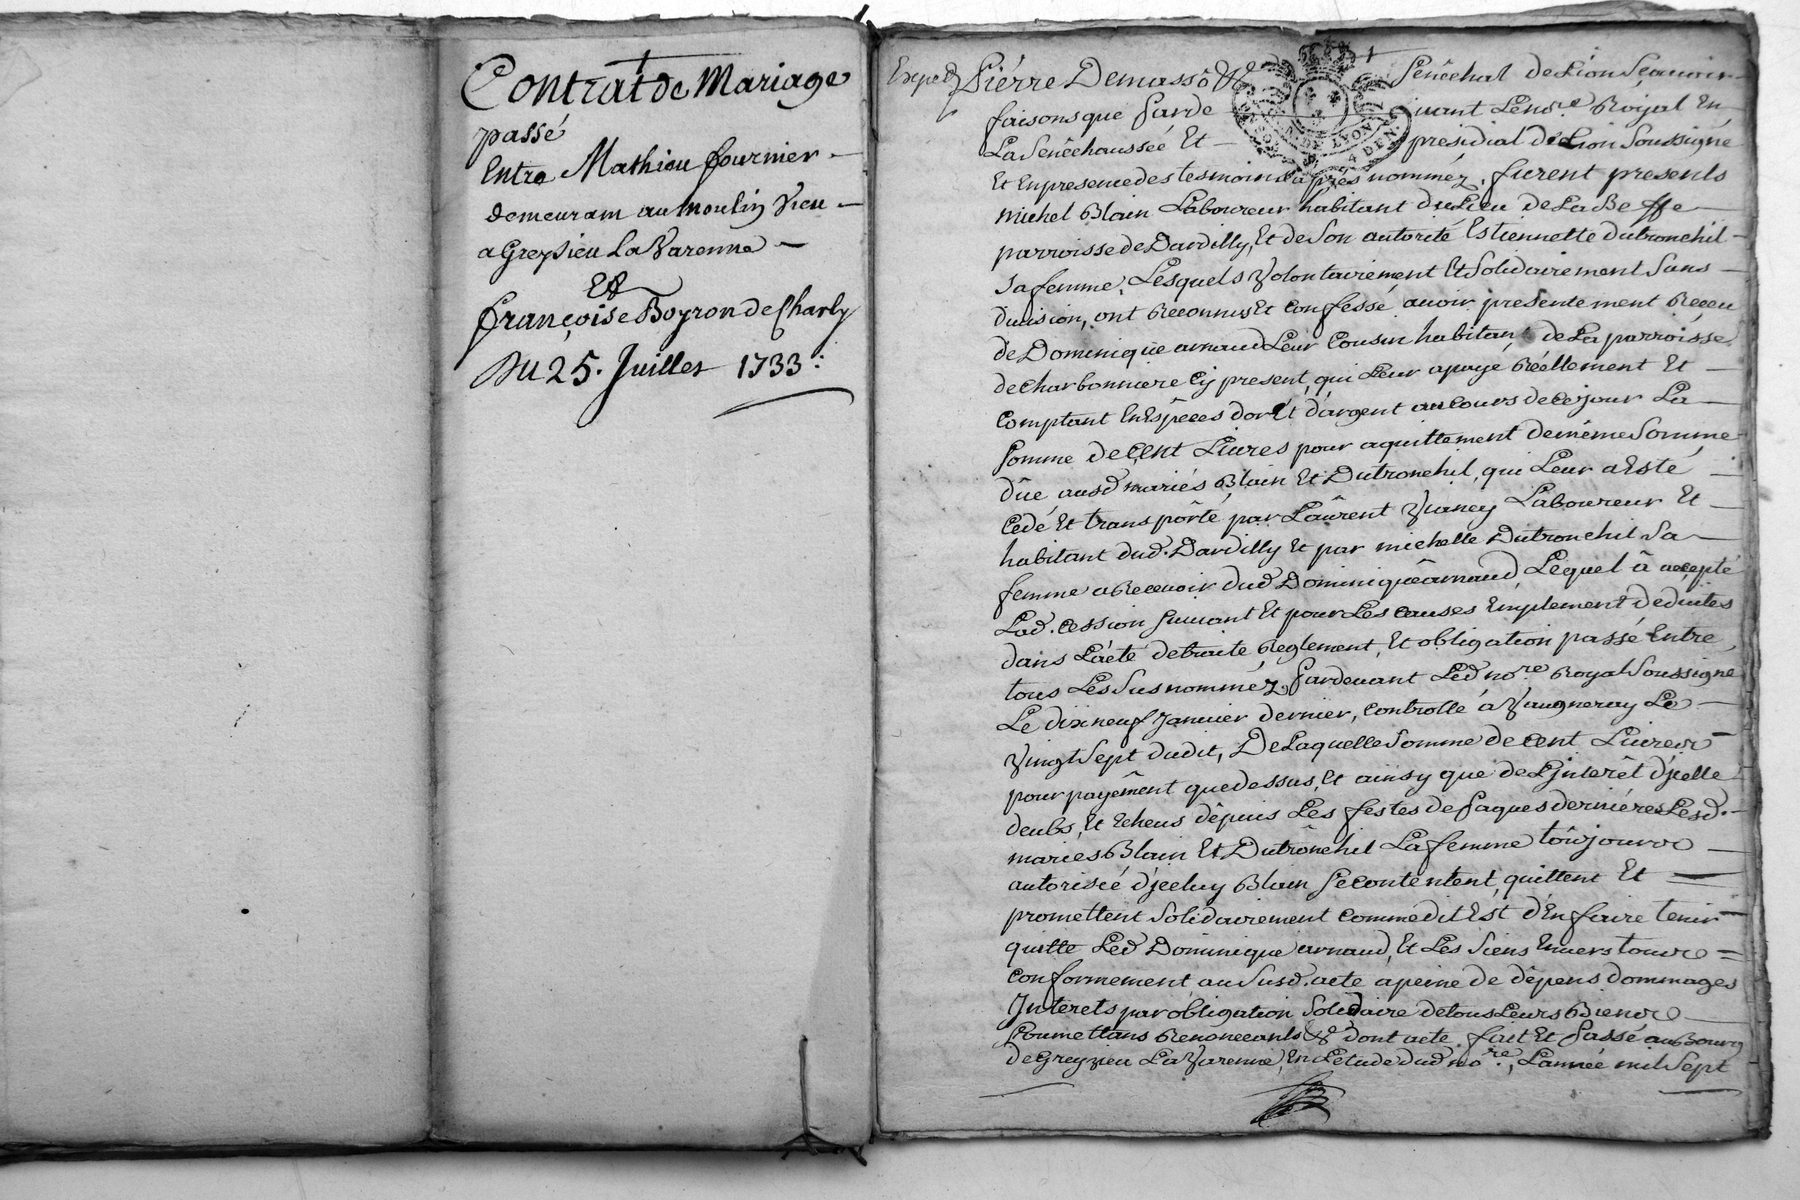 Contrat de Mariage
passé
Entre Mathieu fournier
demeurant au moulin Vieu
a Greysieu La Varenne
Et
françoise Boyron de Charly
Du 25. Juillet 1733.
Exped Pierre Demasso & Senêchal de Lion Sçavoir
faisons que Par de uant Le no.re Royal En
La Senêchaussée Et presidial de Lion Soussigné
Et En presence des tesmoins après nommez, furent presents
michel Blain Laboureur habitant du Lieu de La Beffe
parroisse de Dardilly, Et de Son autorité Estiennette dutronchil
Sa femme, Lesquels Volontairement Et Solidairement Sans
diuision, ont Reconnus Et Confessé auoir presentement Receu
de Dominique arnaud Leur Cousin habitant de La parroisse
de charbonniere Cy present, qui Leur a payé Réellement Et
Comptant En Espêces dor Et d'argent au Cours de ce jour La
Somme de Cent Liures pour aquittement de même Somme
dûe ausd mariés Blain Et Dutronchil, qui Leur a Esté
Cedé Et transpôrté par Laûrent Vianey Laboureur Et
habitant dud. Dardilly Et par michelle Dutronchil Sa
femme a Receuoir dud Dominique arnaud, Lequel â accepté
Lad. cession suiuant Et pour Les causes Emplement deduites
dans L'acte de traité, Reglement, Et obligation passé Entre
tous Les Susnommez Pardeuant Led no.re Royal Soussigné
Le dix neuf Januier dernier, Controllé à Vaugneray Le
Vingt Sept dudit, De Laquelle Somme de Cent Liures
pour payêment que dessus, Et ainsy que de L'jnterêt d'jcelle
deubs, Et Echeus dêpuis Les festes de Paques derniéres Lesd.
mariés Blain Et Dutrônchil La femme toûjours
autorisée d'jceluy Blain Se contentent, quittent Et
promettent Solidairement Comme dit Est d'En faire tenir
quitte Led Dominique arnaud, Et Les Siens Enuers tous
Conformement au Susd. acte a peine de dêpens dommages
Jnterets par obligation Solidaire de tous Leurs Biens
Promettans Renonceants &. dont acte. fait Et Passé au Bourg
de Greyzieu La Varenne, En L'etude dud no.re, L'année mil Sept